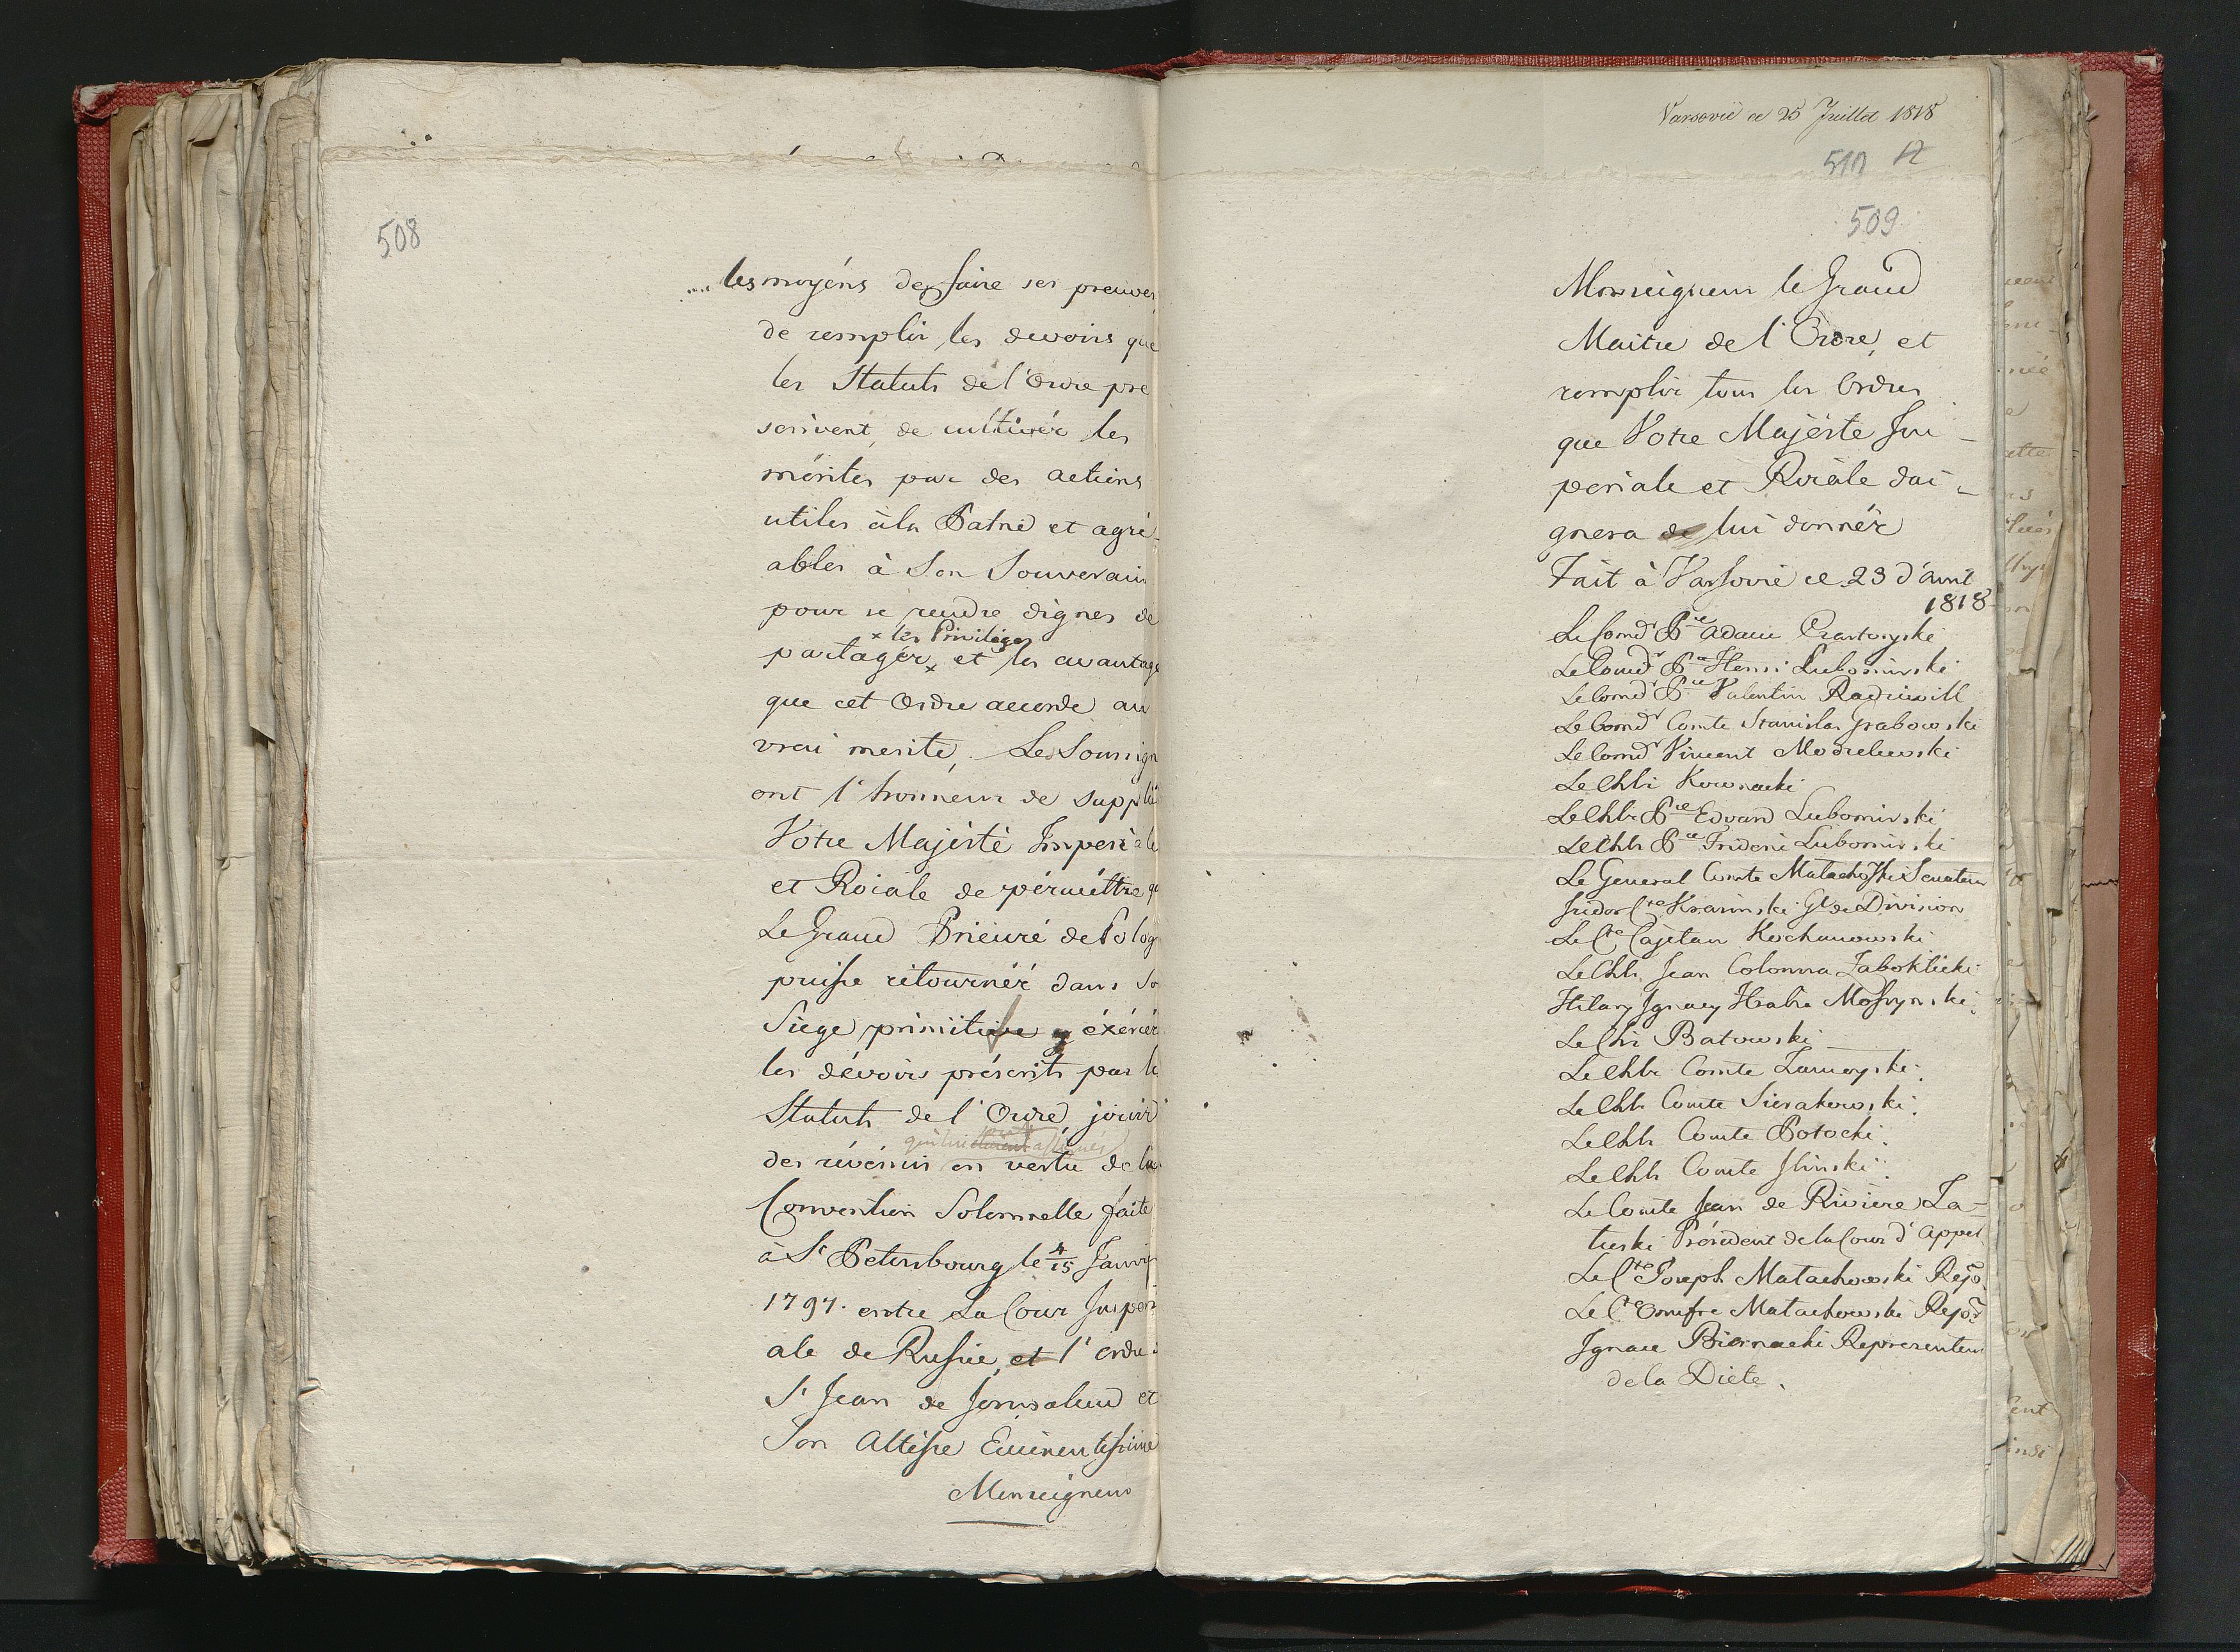 508
les moyéns de faire ses preuves
de remplir les devoirs que
les Statuts de l'Ordre pre
scrivent, de cultivér les
mérites par des actions
utiles à la Patrie et agré-
ables à Son Souverain
pour se rendre dignes de
× les Privilèges
partagér × et les avantage
que cet Ordre accorde au
vrai merite, Les Soussign
ont l'honneur de suppli
Votre Majésté Imperiale
et Roiale de pérméttre qu
Le Grand Prieuré de Polog
puisse rétournér dans So
Siege primitive y éxércér
les dévoirs préscrits par le
Statuts de l'Ordre, jouir
qui lui étaient assignés
des révénus en vertu de la
Convention Solemnelle faite
à St Petersbourg le 4/15 Janvie
1797. entre La Cour Imperi
ale de Russie, et l'ordre
St Jean de Jerusalem et
Son Altésse Eminentissime
Monseigneur
Varsovie ce 25 Juillet 1818
510 12
509
Monseigneur le Grand
Maitre de l'Ordre, et
remplir tous les Ordres
que Votre Majésté Im-
periale et Roiale dai-
gnera de lui donnér
Fait à Varsovie ce 23 d'avril
1818
Le Comdr Pce Adam Czartoryski
Le Comdr Pce Henri Lubomirski
Le Comdr Pce Valentin Radziwill
Le Comdr Comte Stanislas Grabowski
Le Comdr Vincent Modzelewski
Le Chlr Kownacki
Le Chlr Pce Edouard Lubomirski
Le Chlr Pce Frideric Lubomirski
Le General Comte Małachowski Senateur
Isidor Cte Krasinski Gl de Division
Le Cte Cajetan Kochanowski
Le Chlr Jean Colonna Zaboklicki
Hilary Ignacy Hrabia Moszynski.
Le Chlr Batowski
Le Chlr Comte Zamoyski.
Le Chlr Comte Sierakowski.
Le Chlr Comte Potocki.
Le Chlr Comte Ilinski.
Le Comte Jean de Riviere Za-
łuski Président de la Cour d'Appel
Le Cte Joseph Małachowski Rep.
Le Cte Onufre Małachowski Rep.
Ignace Biernacki Representeur
de la Diete.